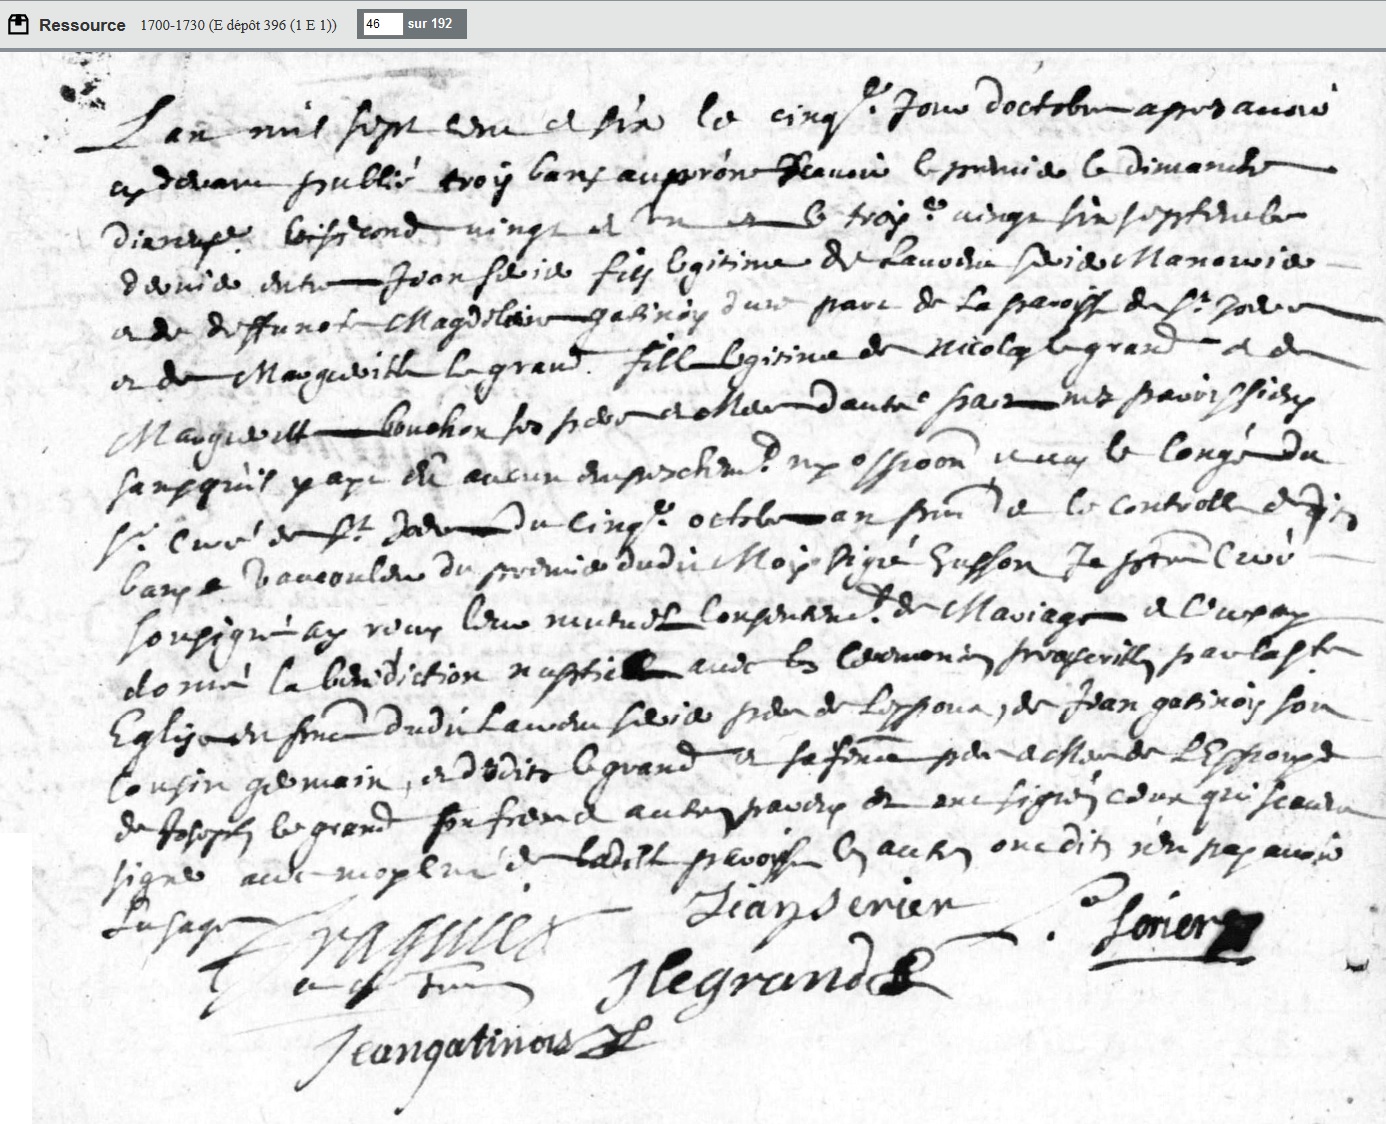 Ressource 1700-1730 (E dépôt 396 (1 E 1)) 46 sur 192
Lan mil sept cens et six le cinq.e Jour doctobre apres avoir
cy devant publié troys bans au prône scavoir le premier le dimanche
le second vingt et un et le troy.e vingt six septembre
dernier entre Jean serier fils legitime de Laurens serier Manouvrier
et de deffuncte Magdelaine gatinois dune part de La paroisse de St. Joire
et de Margueritte Legrand fille legitime de Nicolas legrand et de
Margueritte bouchon ses pere et mere dautre part mes paroissiens
sans quil y aye eû aucun empeschem.t ny oppoôn veu le Congé du
Sr. Curé de St. Joire du cinq.e octobre an pnt et le controlle desdits
bans a Vaucouleur du premier dudit Moys signé husson Je pbtre Curé
soussigné ay receu leur mutuel Consentem.t de Mariage et leur ay
donné la benediction nuptialle avec les Ceremonies prescrittes par la ste
Eglise en pnce dudit Laurens serier pere de Lespoux, de Jean gatinois son
Cousin germain, et desdits legrand et sa feme pere et Mere de LEspouse
de Joseph le grand son frere et autres parens et ont signés ceux qui scavent
signer avec moy de ladite paroisse les autres ont dits nen pas avoir
Lusage
Jean Serier
L. serier
J legrand
Jean gatinois